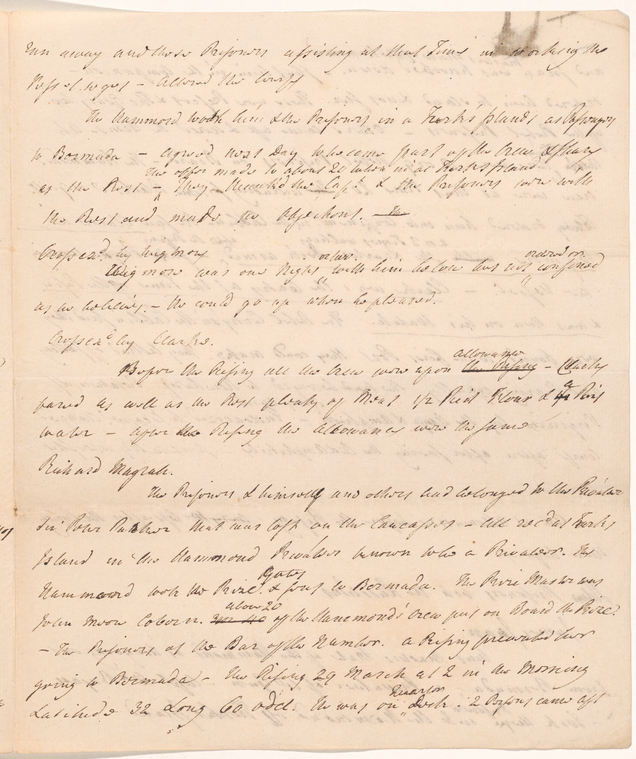 Run away and those Prisoners assisting at that Time in working the
Vessel. to get - altered the Course
The Hammond took him & the Prisoners in at Turks Islands as Passengers
to Bermuda - agreed next Day to become part of the Crew & share
the offer made to about 20 taken in at Turks Island
as the Rest - They the Cap. & the Prisoners were with
the Rest and made no Objections. - The
Cross exd. by
was one Night with him below but not confined
as he believes. - He could go up when he pleased.
Cross exd. by Clarke.
allowance
Before the Rising all the Crew were upon the Rising - Clarke
fared as well as the Rest plenty of Meat 1/2 Pint Flour & a Pint
Water - after the Rising the Allowance were the same
Richard Magrah.
The Prisoners & himself and others had belonged to the Privateer
Sir Peter Parker that was lost on the Caucasses - all recd. at Turks
Island in the Hammond Privateer known to be a Privateer. The
Hammond took the Prize & sent to Bermuda. The Prize Master was
about 20
John Moor Coborn. of the Hammond's Crew put on Board the Prize
- The Prisoners at the Bar of the Number. a Rising prevented her
going to Bermuda - The Rising 29 March at 2 in the Morning
Quarter
Latitude 32 Long 60 odd. He was on Deck. 2 Persons came aft